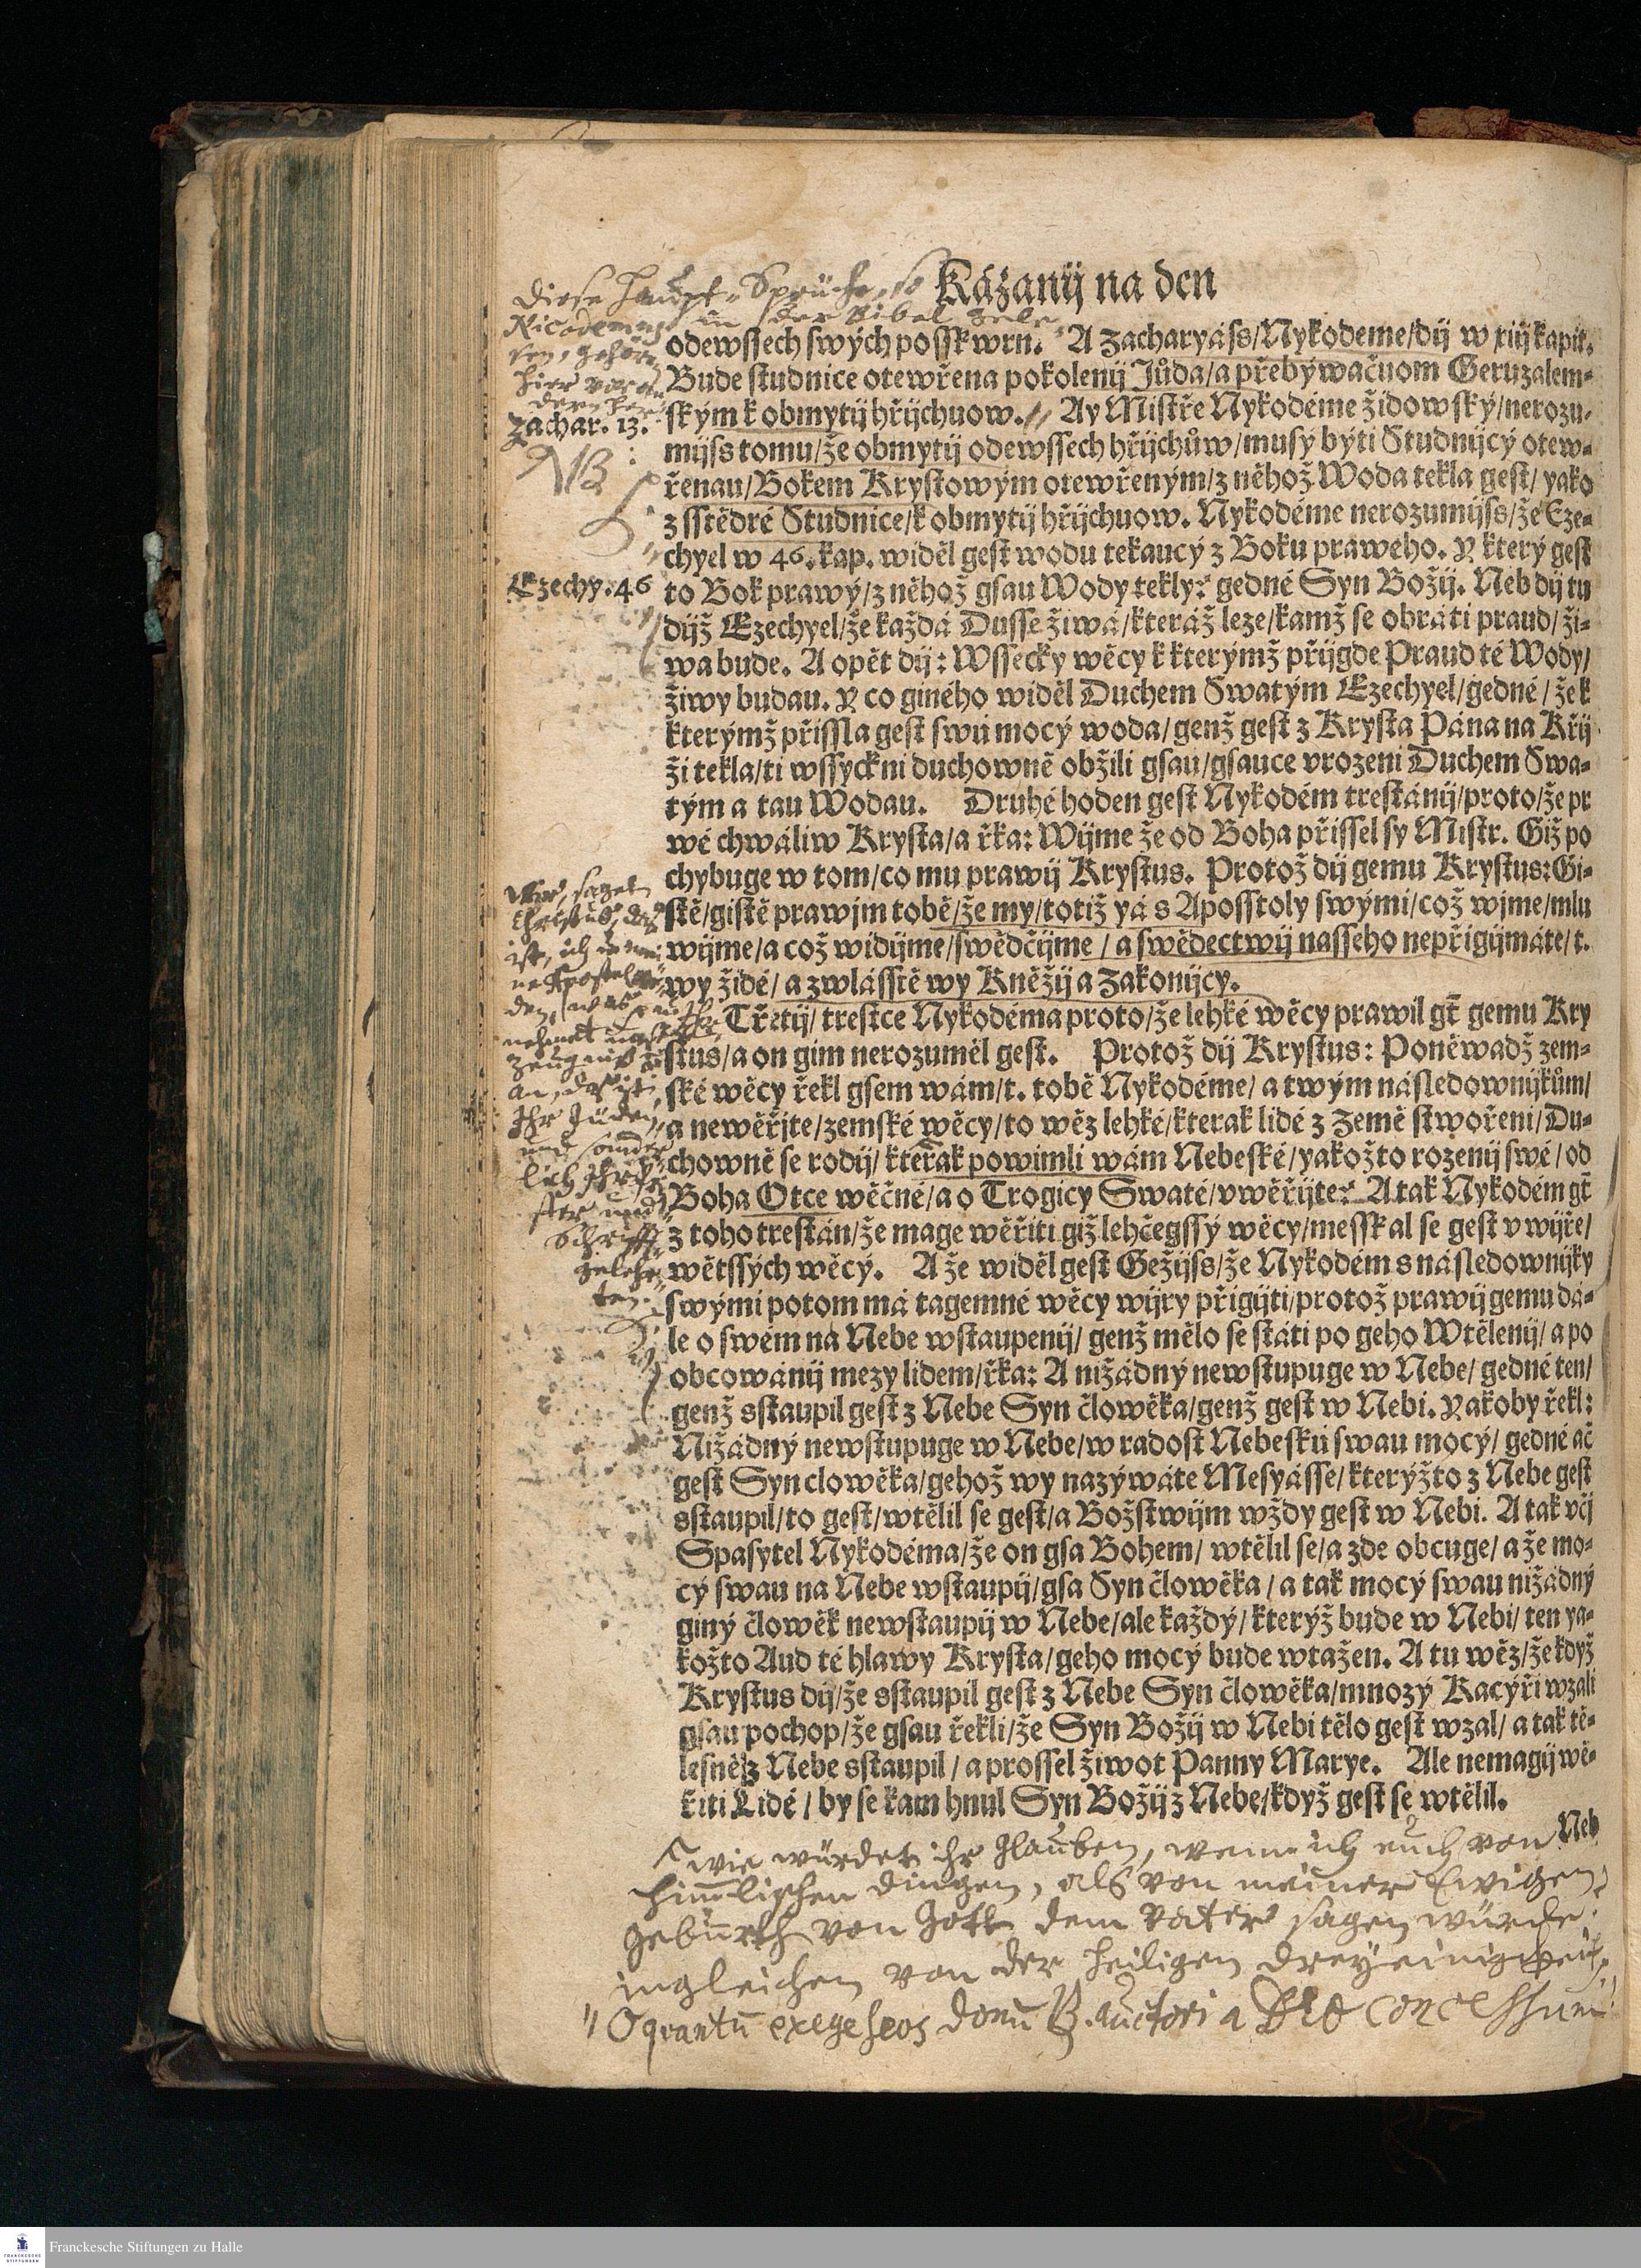 Diese Haupt-Sprüche, so
Nicodemus in der Bibel gele-
sen, gehören
hier
Kázanij na den
odewssech swých posskwrn. A Zacharyáss/Nykodeme/dij w xiij kapit.
Bude studnice otewřena pokolenij Jůda/a přebýwačuom Geruzalem-
Zachar. 13.
ským k obmytij hřijchuow. // Ay Mistře Nykodéme židowský/nerozu-
NB:
mijss tomu/že obmytij odewssech hřijchůw/musý býti Studnijcý otew-
řenau/Bokem Krystowým otewřeným/z něhož Woda tekla gest/yako
z sstědré Studnice/k obmytij hřijchuow. Nykodéme nerozumijss/že Eze-
chyel w 46. kap. widěl gest wodu tekaucý z Boku praweho. Y který gest
Ezechy. 46
to Bok prawý/z něhož gsau Wody tekly? gedné Syn Božij. Neb dij tu
dijž Ezechyel/že každá Dusse žiwá/kteráž leze/kamž se obráti praud/ži-
wa bude. A opět dij: Wssecky wěcy k kterýmž přijgde Praud té Wody/
žiwy budau. Y co giného widěl Duchem Swatým Ezechyel/gedné/že k
kterýmž přissla gest swú mocý woda/genž gest z Krysta Pána na Křij
ži tekla/ti wssyckni duchowně obžili gsau/gsauce vrozeni Duchem Swa-
tým a tau Wodau. Druhé hoden gest Nykodém trestánij/proto/že pr
wé chwáliw Krysta/a řka: Wijme že od Boha přissel sy Mistr. Giž po
chybuge w tom/co mu prawij Krystus. Protož dij gemu Krystus: Gi-
stě/gistě prawjm tobě/že my/totiž yá s Aposstoly swými/což wjme/mlu
wijme/a což widijme/swědčijme/a swědectwij nasseho nepřigijmáte/t.
wy židé/a zwlásstě wy Kněžij a Zakonijcy.
Třetij/ trestce Nykodéma proto/že lehké wěcy prawil gt gemu Kry
stus/a on gim nerozuměl gest. Protož dij Krystus: Poněwadž zem-
ské wěcy řekl gsem wám/t. tobě Nykodéme/ a twým následownijkům/
a newěřjte/zemské wěcy/to wěz lehké/kterak lidé z Země stwořeni/Du-
chowně se rodij/kterak powimli wám Nebeské/yakožto rozenij swé/od
Boha Otce wěčné/a o Trogicy Swaté/vwěřijte? A tak Nykodém gt
z toho trestán/že mage wěřiti giž lehčegssý wěcy/messkal se gest v wijře/
wětssých wěcý. A že widěl gest Gežijss/že Nykodém s následownijky
swými potom má tagemné wěcy wijry přigijti/protož prawij gemu dá-
le o swém na Nebe wstaupenij/ genž mělo se státi po geho Wtělenij/ a po
obcowánij mezy lidem/řka: A nižádný newstupuge w Nebe/ gedné ten/
genž sstaupil gest z Nebe Syn člowěka/genž gest w Nebi. Yakoby řekl:
Nižádný newstupuge w Nebe/w radost Nebeskú swau mocý/ gedné ač
gest Syn clowěka/gehož wy nazýwáte Mesyásse/kterýžto z Nebe gest
sstaupil/to gest/wtělil se gest/a Božstwijm wždy gest w Nebi. A tak včj
Spasytel Nykodéma/že on gsa Bohem/ wtělil se/a zde obcuge/ a že mo-
cý swau na Nebe wstaupij/gsa Syn člowěka/ a tak mocý swau nižádný
giný člowěk newstaupij w Nebe/ale každý/kterýž bude w Nebi/ ten ya-
kožto Aud té hlawy Krysta/geho mocý bude wtažen. A tu wěz/že když
Krystus dij/že sstaupil gest z Nebe Syn člowěka/mnozý Kacýři wzali
gsau pochop/že gsau řekli/že Syn Božij w Nebi tělo gest wzal/ a tak tě-
lesně z Nebe sstaupil/ a prossel žiwot Panny Marye. Ale nemagij wě-
řiti Lidé/ by se kam hnul Syn Božij z Nebe/když gest se wtělil.
Neb
Wir, saget
Christus, das
ist, ich u. mei-
ne Apostel re-
den, was
nehmet
zeugniß
an, das ist
Ihr Jüden,
und sonder-
lich
Schrifft-
gelehr-
ten.
wie würdet ihr glauben, wenn ich euch von
himmlischen dingen, als von meiner Ewigen
geburth von Gott dem Vater sagen würde.
ingleichen von der heiligen dreyeinigkeit.
O quantū exegeseos donū B. auctori a Deo concessum!
Franckesche Stiftungen zu Halle